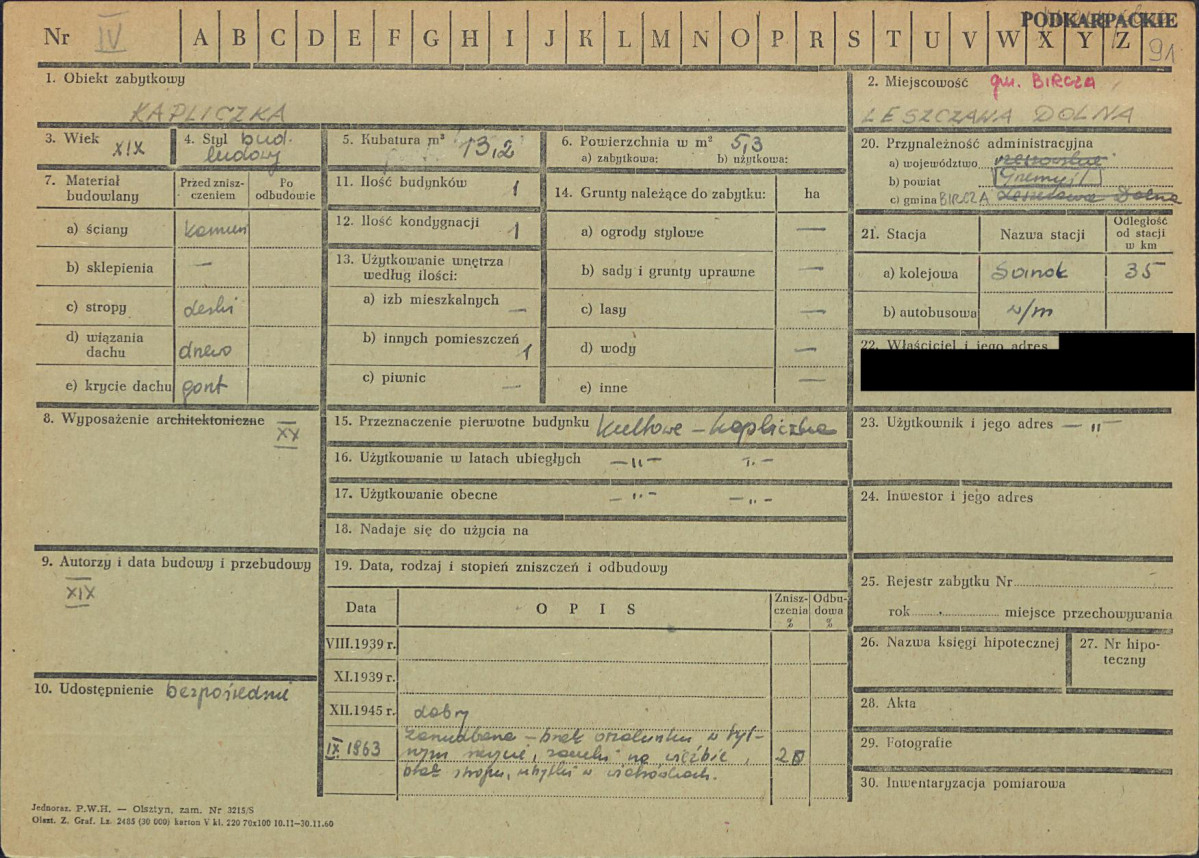 PODKARPACKIE
Nr IV A B C D E F G H I J K L M N O P R S T U V W X Y Z 91
1. Obiekt zabytkowy
KAPLICZKA
2. Miejscowość gm. BIRCZA
LESZCZAWA DOLNA
3. Wiek XIX
4. Styl bud. ludowy
5. Kubatura m³ 13,2
6. Powierzchnia w m² 5,3
a) zabytkowa: b) użytkowa:
7. Materiał budowlany
Przed zniszczeniem
Po odbudowie
a) ściany kamień
b) sklepienia —
c) stropy deski
d) wiązania dachu drewo
e) krycie dachu gont
8. Wyposażenie architektoniczne
XX
9. Autorzy i data budowy i przebudowy
XIX
10. Udostępnienie bezpośrednie
11. Ilość budynków 1
12. Ilość kondygnacji 1
13. Użytkowanie wnętrza według ilości:
a) izb mieszkalnych —
b) innych pomieszczeń 1
c) piwnic —
14. Grunty należące do zabytku: ha
a) ogrody stylowe —
b) sady i grunty uprawne —
c) lasy —
d) wody —
e) inne —
15. Przeznaczenie pierwotne budynku kultowe – kapliczka
16. Użytkowanie w latach ubiegłych —„— —„—
17. Użytkowanie obecne —„— —„—
18. Nadaje się do użycia na
19. Data, rodzaj i stopień zniszczeń i odbudowy
Data OPIS Zniszczenia % Odbudowa %
VIII.1939 r.
XI.1939 r.
XII.1945 r. dobry
IX 1963 zaniedbana – brak w tylnym na więźbie,
brak stropu, ubytki w
20. Przynależność administracyjna
a) województwo rzeszowskie
b) powiat Przemyśl
c) gmina BIRCZA Leszczawa Dolna
21. Stacja Nazwa stacji Odległość od stacji w km
a) kolejowa Sanok 35
b) autobusowa n/m
22. Właściciel i jego adres
23. Użytkownik i jego adres —„—
24. Inwestor i jego adres
25. Rejestr zabytku Nr
rok miejsce przechowywania
26. Nazwa księgi hipotecznej
27. Nr hipoteczny
28. Akta
29. Fotografie
30. Inwentaryzacja pomiarowa
Jednoraz. P.W.H. — Olsztyn, zam. Nr 3215/S
Olszt. Z. Graf. Lz. 2485 (30 000) karton V kl. 220 70x100 10.11–30.11.60